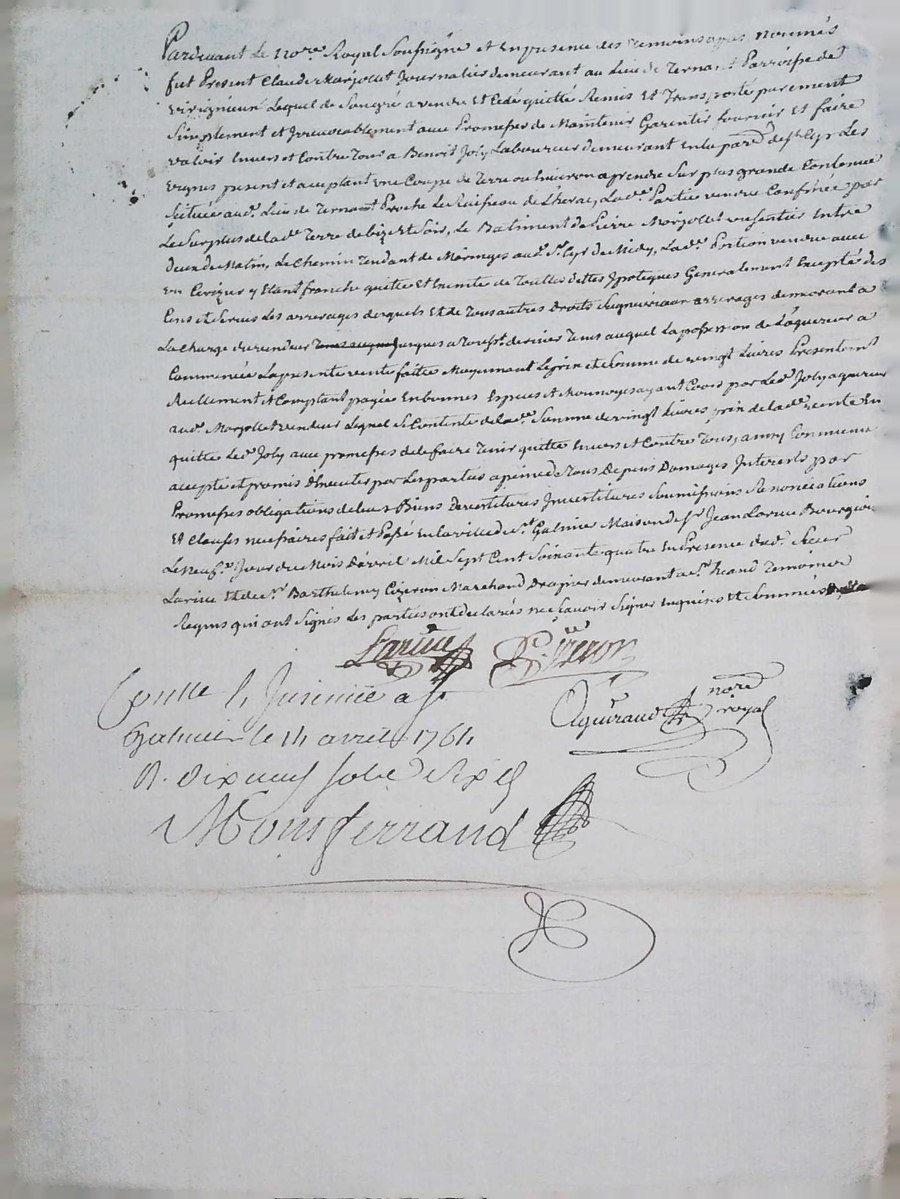 Pardevant Le Nore Royal Soussigné et En presence des temoins apres Nommés
fut Present Claude Marjollet Journalier demeurant au Lieu de Ternant Parroisse de
virigneux Lequel de Son gré a vendu Et Cedé quitté Remis Et Transporté purement
Simplement et Irrevocablement avec Promesses de Maintenir Garentir fournir Et faire
valoir Envers et Contre Tous a Benoit Joly Laboureur demeurant En la par.e de St Cyr Les
vignes present et acceptant une Coupe de Terre ou Environ a prendre Sur plus grande Contenue
Scituée aud. Lieu de Ternant Proche Le Ruisseau de Lherac, Lad.e Partie vendue Confinée par
Le Surplus de lad.e Terre de bize et Soir, Le Batiment de Pierre Morjollet un Sentier Entre
deux de Matin, Le Chemin Tendant de Maringes aud. St Cyr de Midy, Lad.e Portion vendue avec
Etant franche quitte Et Exempte de Touttes dettes Ypoteques Generalement Excepté des
Cens et Servis Les arrerages desquels Et de Tous autres Droits Seigneuriaux arrerages demeurant a
La Charge du vendeur jusques a ce dernier Tems auquel La possession de L'aquereur a
Commencé La presente vente faitte Moyennant Le prix et Somme de vingt Livres Presentement
Reellement et Comptant payée En bonnes Especes et Monnoyes ayant Cours par Led. Joly aquereur
aud. Marjollet vendeur Lequel Se Contente de lad.e Somme de vingt Livres prix de lad.e vente En
quitte Led. Joly avec promesses de le faire Tenir quitte Envers et Contre Tous, ainsy Convenu
accepté et promis d'Executer par Les parties a peine de Tous Depens Domages Interests par
Promesses obligations de leurs Biens Devestitures Investitures Soumissions Renonciations
Et Clauses necessaires fait et Passé En la ville de St Galmier Maison de Sr Jean Larive Bourgeois
Le Neuf.e Jour du Mois d'avril Mil Sept Cent Soixante quatre En Presence dud. Sieur
Larive Et de Sr Barthelemy Cizeron Marchand Drapier demeurant a St Temoins
Requis qui ont Signés Les parties ont declarés ne Scavoir Signer Enquises Et Sommées
Larive
Cizeron
Aguiraud nore royal
Conlle & Insinué a St
Galmier le 14 avril 1764
R. dix neuf Sols Six d
Montferrand